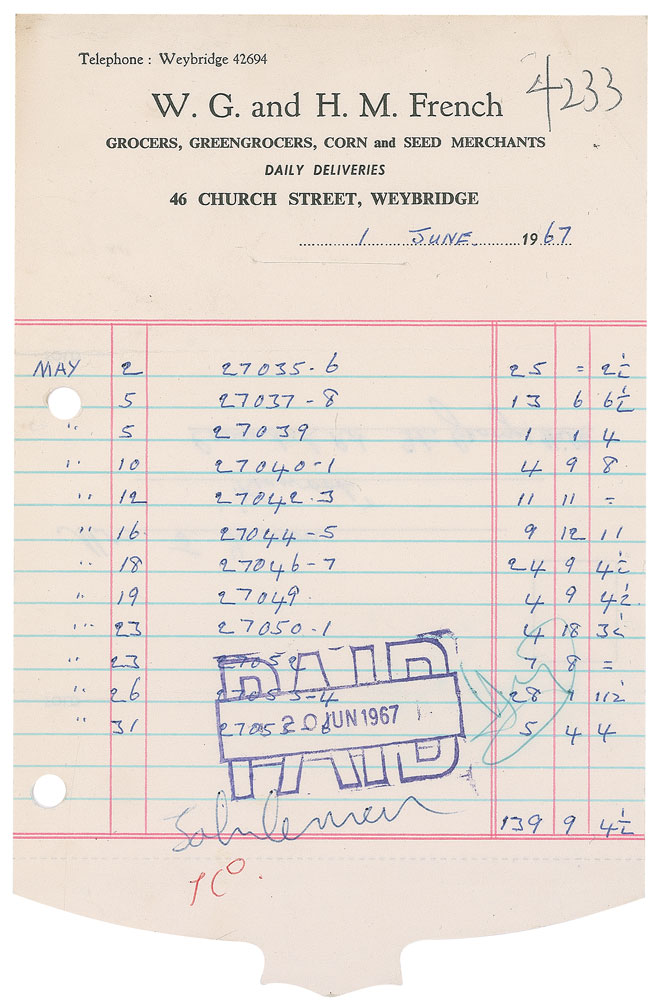 Telephone : Weybridge 42694
4233
W. G. and H. M. French
GROCERS, GREENGROCERS, CORN and SEED MERCHANTS
DAILY DELIVERIES
46 CHURCH STREET, WEYBRIDGE
1 JUNE 1967
MAY 2 27035-6 25 = 2½
5 27037-8 13 6 6½
" 5 27039 1 1 4
" 10 27040-1 4 9 8
" 12 27042-3 11 11 =
" 16 27044-5 9 12 11
" 18 27046-7 24 9 4½
" 19 27049 4 9 4½
" 23 27050-1 4 18 3½
" 23 27052 7 8 =
" 26 27053-4 28 11½
" 31 5 4 4
PAID
20 JUN 1967
PAID
139 9 4½